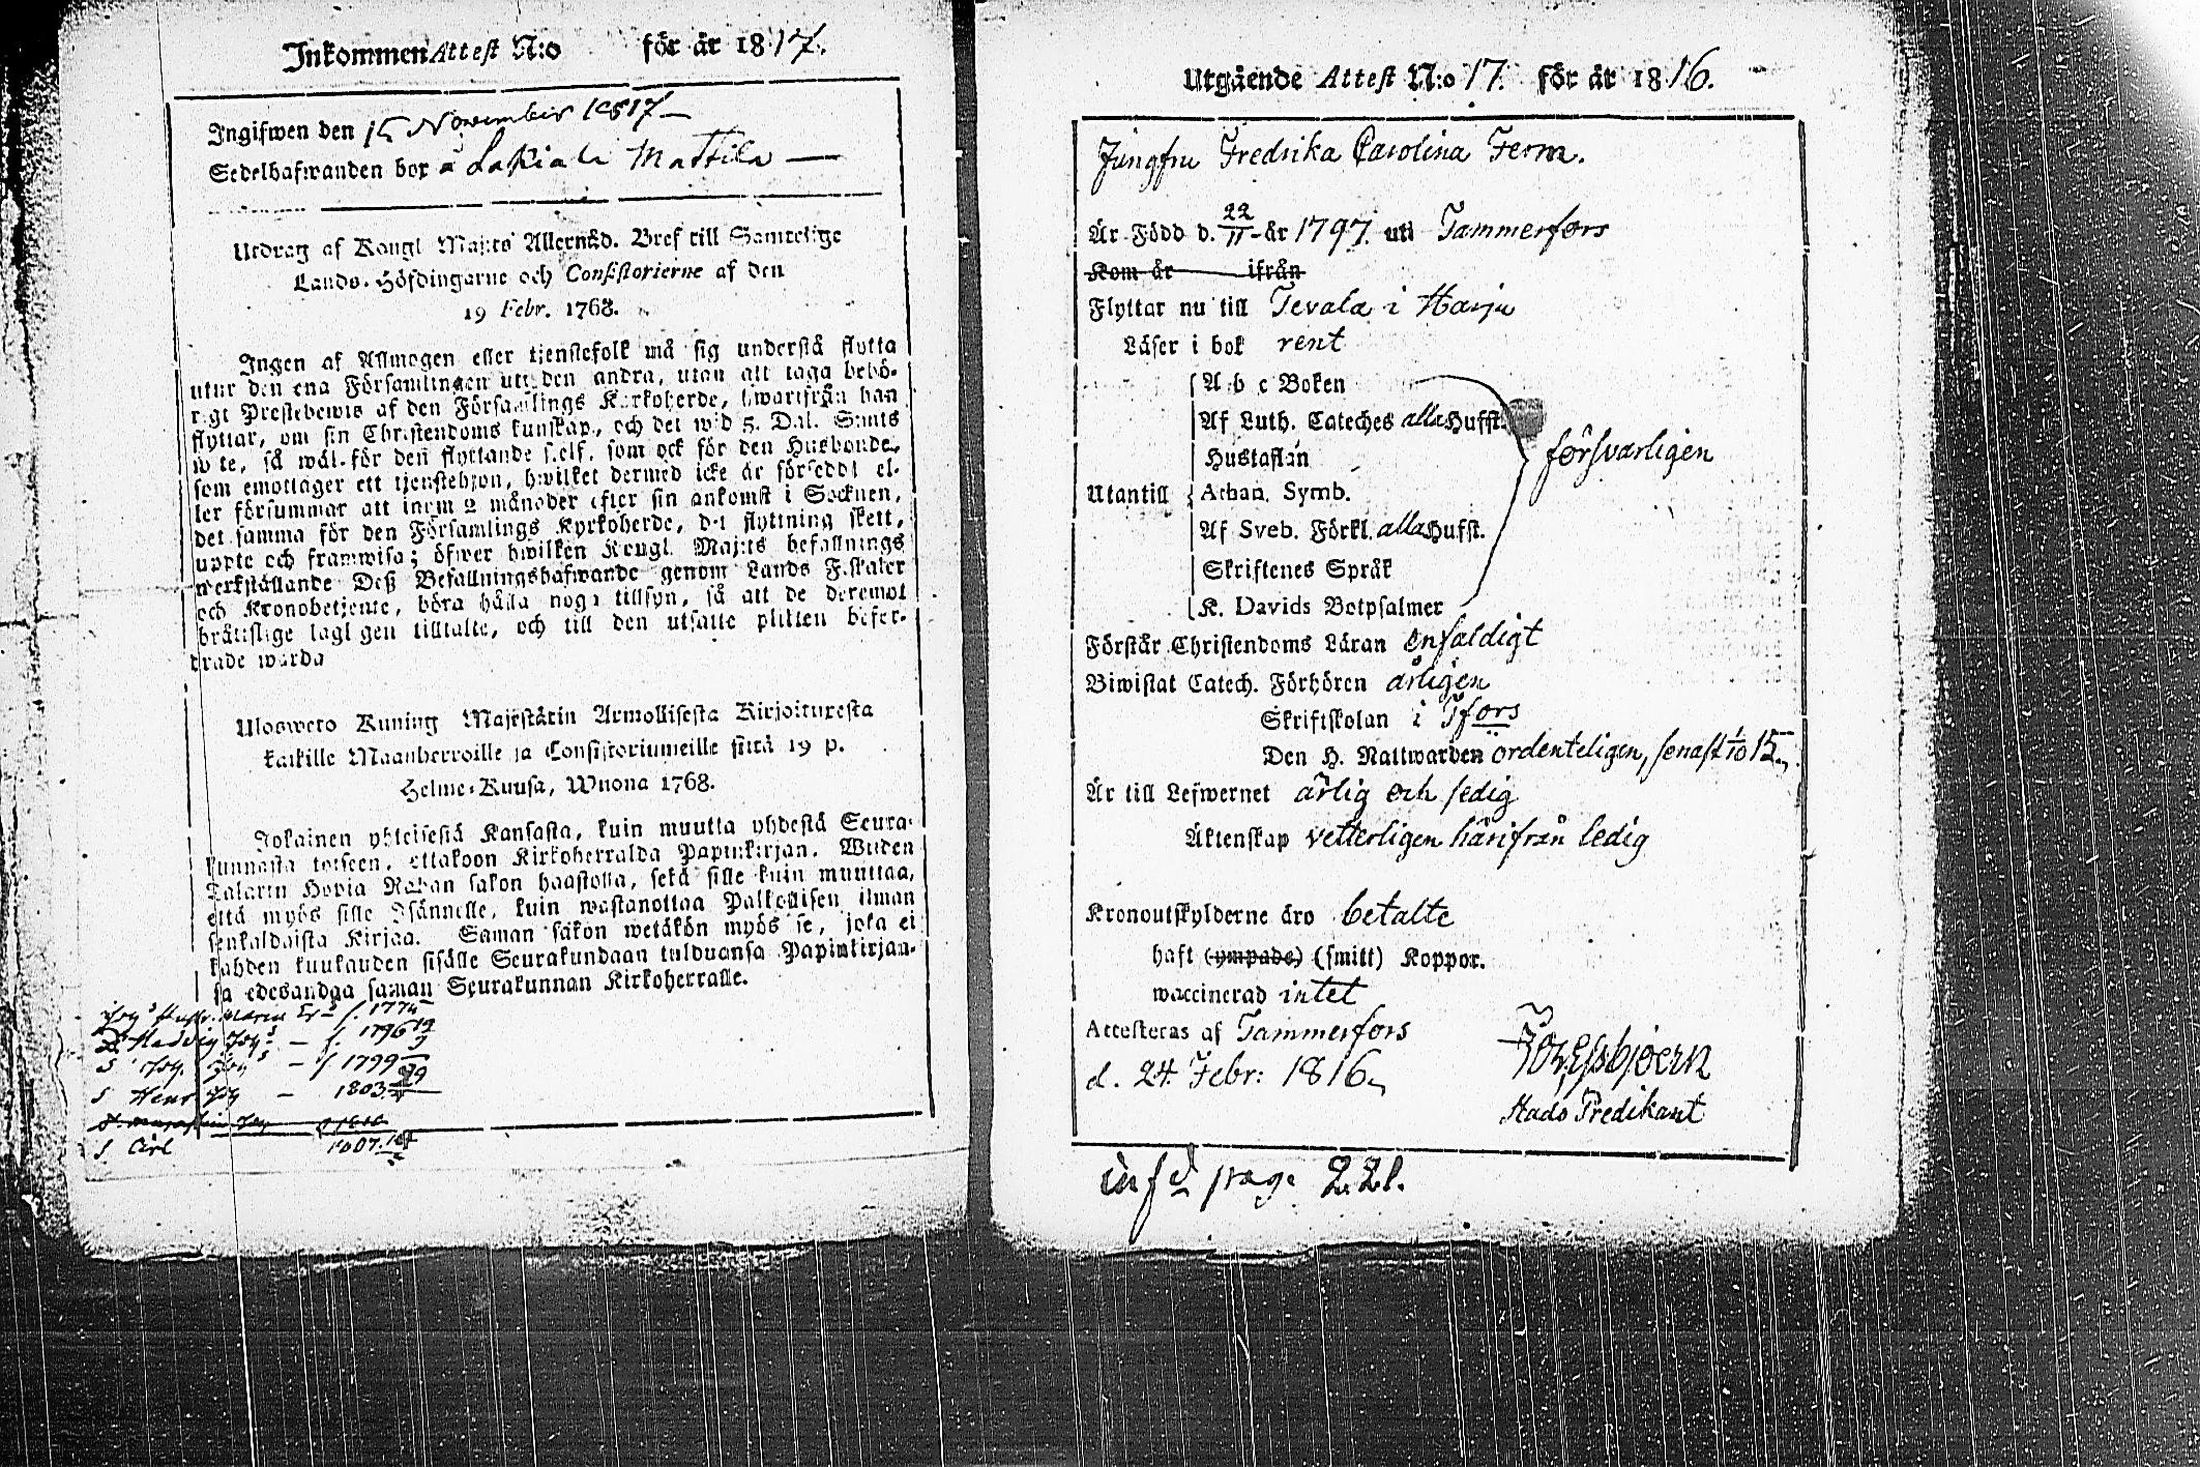 Inkommen Attest N:o för år 1817.
Ingifwen den 15 November 1817
Sedelhafwanden bor å Lakiala Mattila
Utdrag af Kongl Maj:ts Allernåd. Bref till Samtelige
Lands-Höfdingarne och Consistorierne af den
19 Febr. 1768.
Ingen af Allmogen eller tjenstefolk må sig understå flytta
utur den ena Församlingen uti den andra, utan att taga behö-
rigt Prestebewis af den Församlings Kyrkoherde, hwarifrån han
flyttar, om sin Christendoms kunskap, och det wid 5. Dal. S:mts
wite, så wäl för den flyttande sielf, som ock för den Husbonde,
som emottager ett tjenstehjon, hwilket dermed icke är försedd; el-
ler försummar att inom 2 månader efter sin ankomst i Socknen,
det samma för den Församlings Kyrkoherde, dit flyttning skett,
uppte och framwisa; öfwer hwilken Kongl. Maj:ts befallnings
werkställande Deß Befallningshafwande genom Lands Fiskaler
och Kronobetjente, böra hålla noga tillsyn, så att de deremot
bråttslige lagligen tilltalte, och till den utsatte plikten befor-
drade warda
Ulosweto Kuning Majestätin Armollisesta Kirjoituxesta
kaikille Maanherroille ja Consistoriumeille siitä 19 p.
Helme-Kuusa, Wuona 1768.
Jokainen yhteisestä Kansasta, kuin muutta yhdestä Seura-
kunnasta toiseen, ottakoon Kirkoherralda Papinkirjan. Wiiden
Talarin Hopia Rahan sakon haastolla, sekä sille kuin muuttaa,
että myös sille Isännelle, kuin wastanottaa Palkollisen ilman
senkaldaista Kirjaa. Saman sakon wetäkön myös se, joka ei
kahden kuukauden sisälle Seurakundaan tulduansa Papinkirjan-
sa edesandaa saman Seurakunnan Kirkoherralle.
Maria f. 1774
Hedvig f. 1796 19/9
S f. 1799
S Henr 1803
S Carl 1807.
Utgående Attest N:o 17. för år 1816.
Jungfru Fredrika Carolina Ferm.
Är Född d. 22/11 år 1797. uti Tammerfors
Kom år ifrån
Flyttar nu till Tevala i Harju
Läser i bok rent
A b c Boken
Af Luth. Cateches alla Hufst.
Hustaflan
försvarligen
Utantill Athan. Symb.
Af Sveb. Förkl. alla Hufst.
Skriftenes Språk
K. Davids Botpsalmer
Förstår Christendoms Läran enfaldigt
Biwistat Catech. Förhören årligen
Skriftskolan i Tfors
Den H. Nattwarden ordenteligen, senast 1/10 15.
Är till Lefwernet ärlig och sedig
Äktenskap vetterligen härifrån ledig
Kronoutskylderne äro betalte
haft (ympade) (smitt) Koppor.
waccinerad intet
Attesteras af Tammerfors
d. 24. Febr: 1816.
Joh. Esbjoern
Stads Predikant
inf d pag. 221.